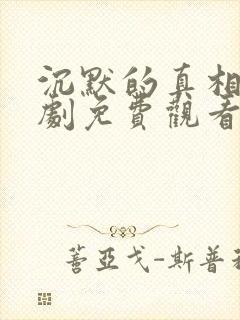 沉默的真相
劇免費觀看
蓍亞戈-斯普